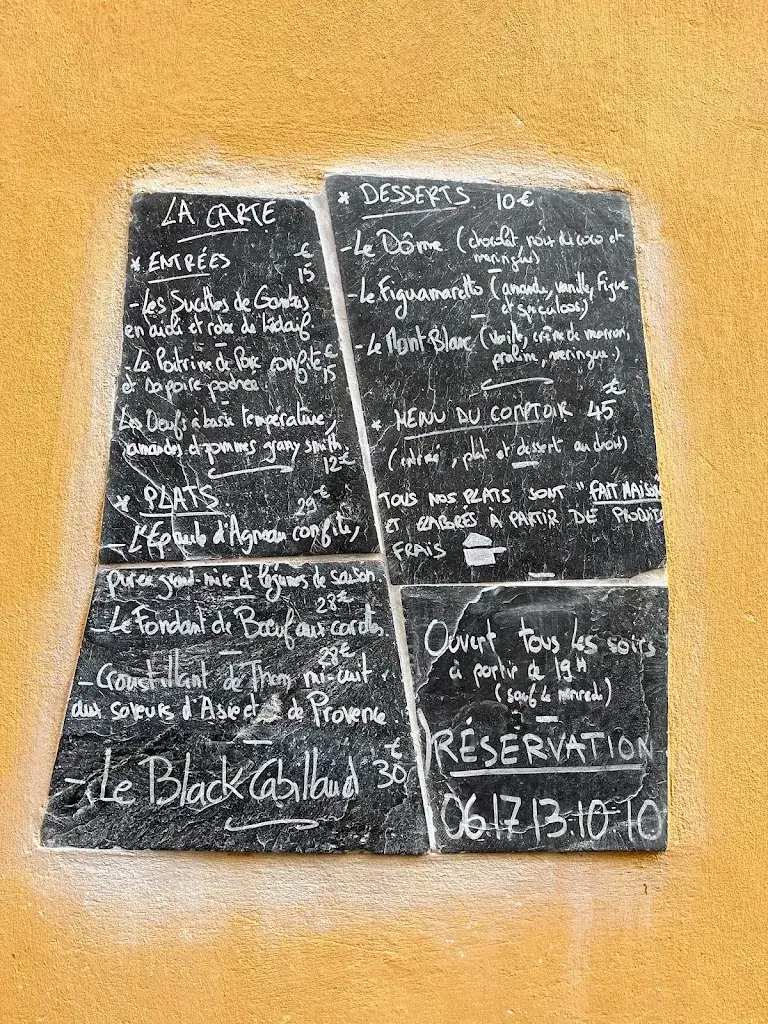 LA CARTE
* ENTRÉES €
15
- Les Sucettes de Gambas
en aïoli et robe de Kadaïf.
- La Poitrine de Porc confite €
et sa poire pochée 15
Les Oeufs à basse température,
amandes et pommes grany smith.
12€
* PLATS 29€
- L'Epaule d'Agneau confite,
purée grand-mère et légumes de saison.
28€
- Le Fondant de Boeuf aux carottes.
28€
- Croustillant de Thon mi-cuit
aux saveurs d'Asie et de Provence
- Le Black Cabillaud 30€
* DESSERTS 10€
- Le Dôme (chocolat, noix de coco et
meringue)
- Le Figuamaretto (amande, vanille, Figue
et speculoos.)
- Le Mont Blanc (vanille, crème de marron,
praline, meringue.)
* MENU DU COMPTOIR 45€
(entrée, plat et dessert au choix)
TOUS NOS PLATS SONT "FAIT MAISON
ET ELABORÉS À PARTIR DE PRODUITS
FRAIS
Ouvert tous les soirs
à partir de 19H
(sauf le mercredi)
RÉSERVATION
06.17.13.10.10